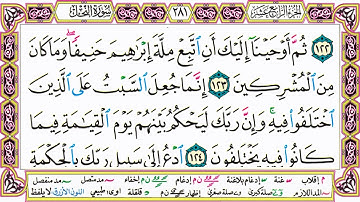 الجزء الرابع عشر ٢٨١ سورة النحل
١٢٢ ثُمَّ أَوْحَيْنَا إِلَيْكَ أَنِ اتَّبِعْ مِلَّةَ إِبْرَاهِيمَ حَنِيفًا وَمَا كَانَ
مِنَ الْمُشْرِكِينَ ١٢٣ إِنَّمَا جُعِلَ السَّبْتُ عَلَى الَّذِينَ
اخْتَلَفُوا فِيهِ وَإِنَّ رَبَّكَ لَيَحْكُمُ بَيْنَهُمْ يَوْمَ الْقِيَامَةِ فِيمَا
كَانُوا فِيهِ يَخْتَلِفُونَ ١٢٤ ادْعُ إِلَى سَبِيلِ رَبِّكَ بِالْحِكْمَةِ